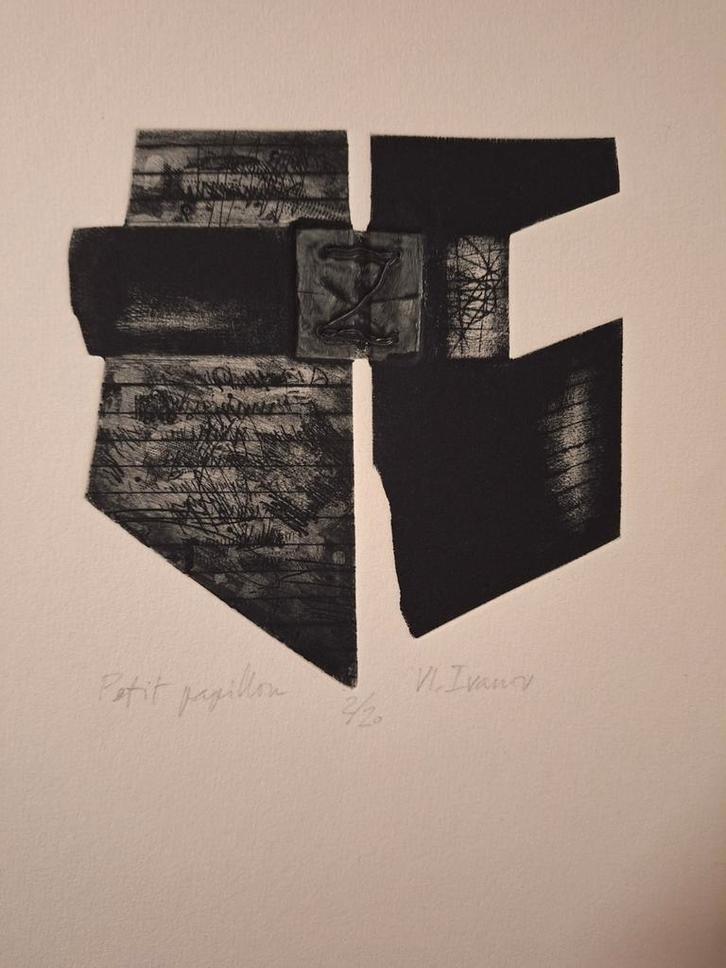 Petit papillon
2/20
Vl. Ivanov